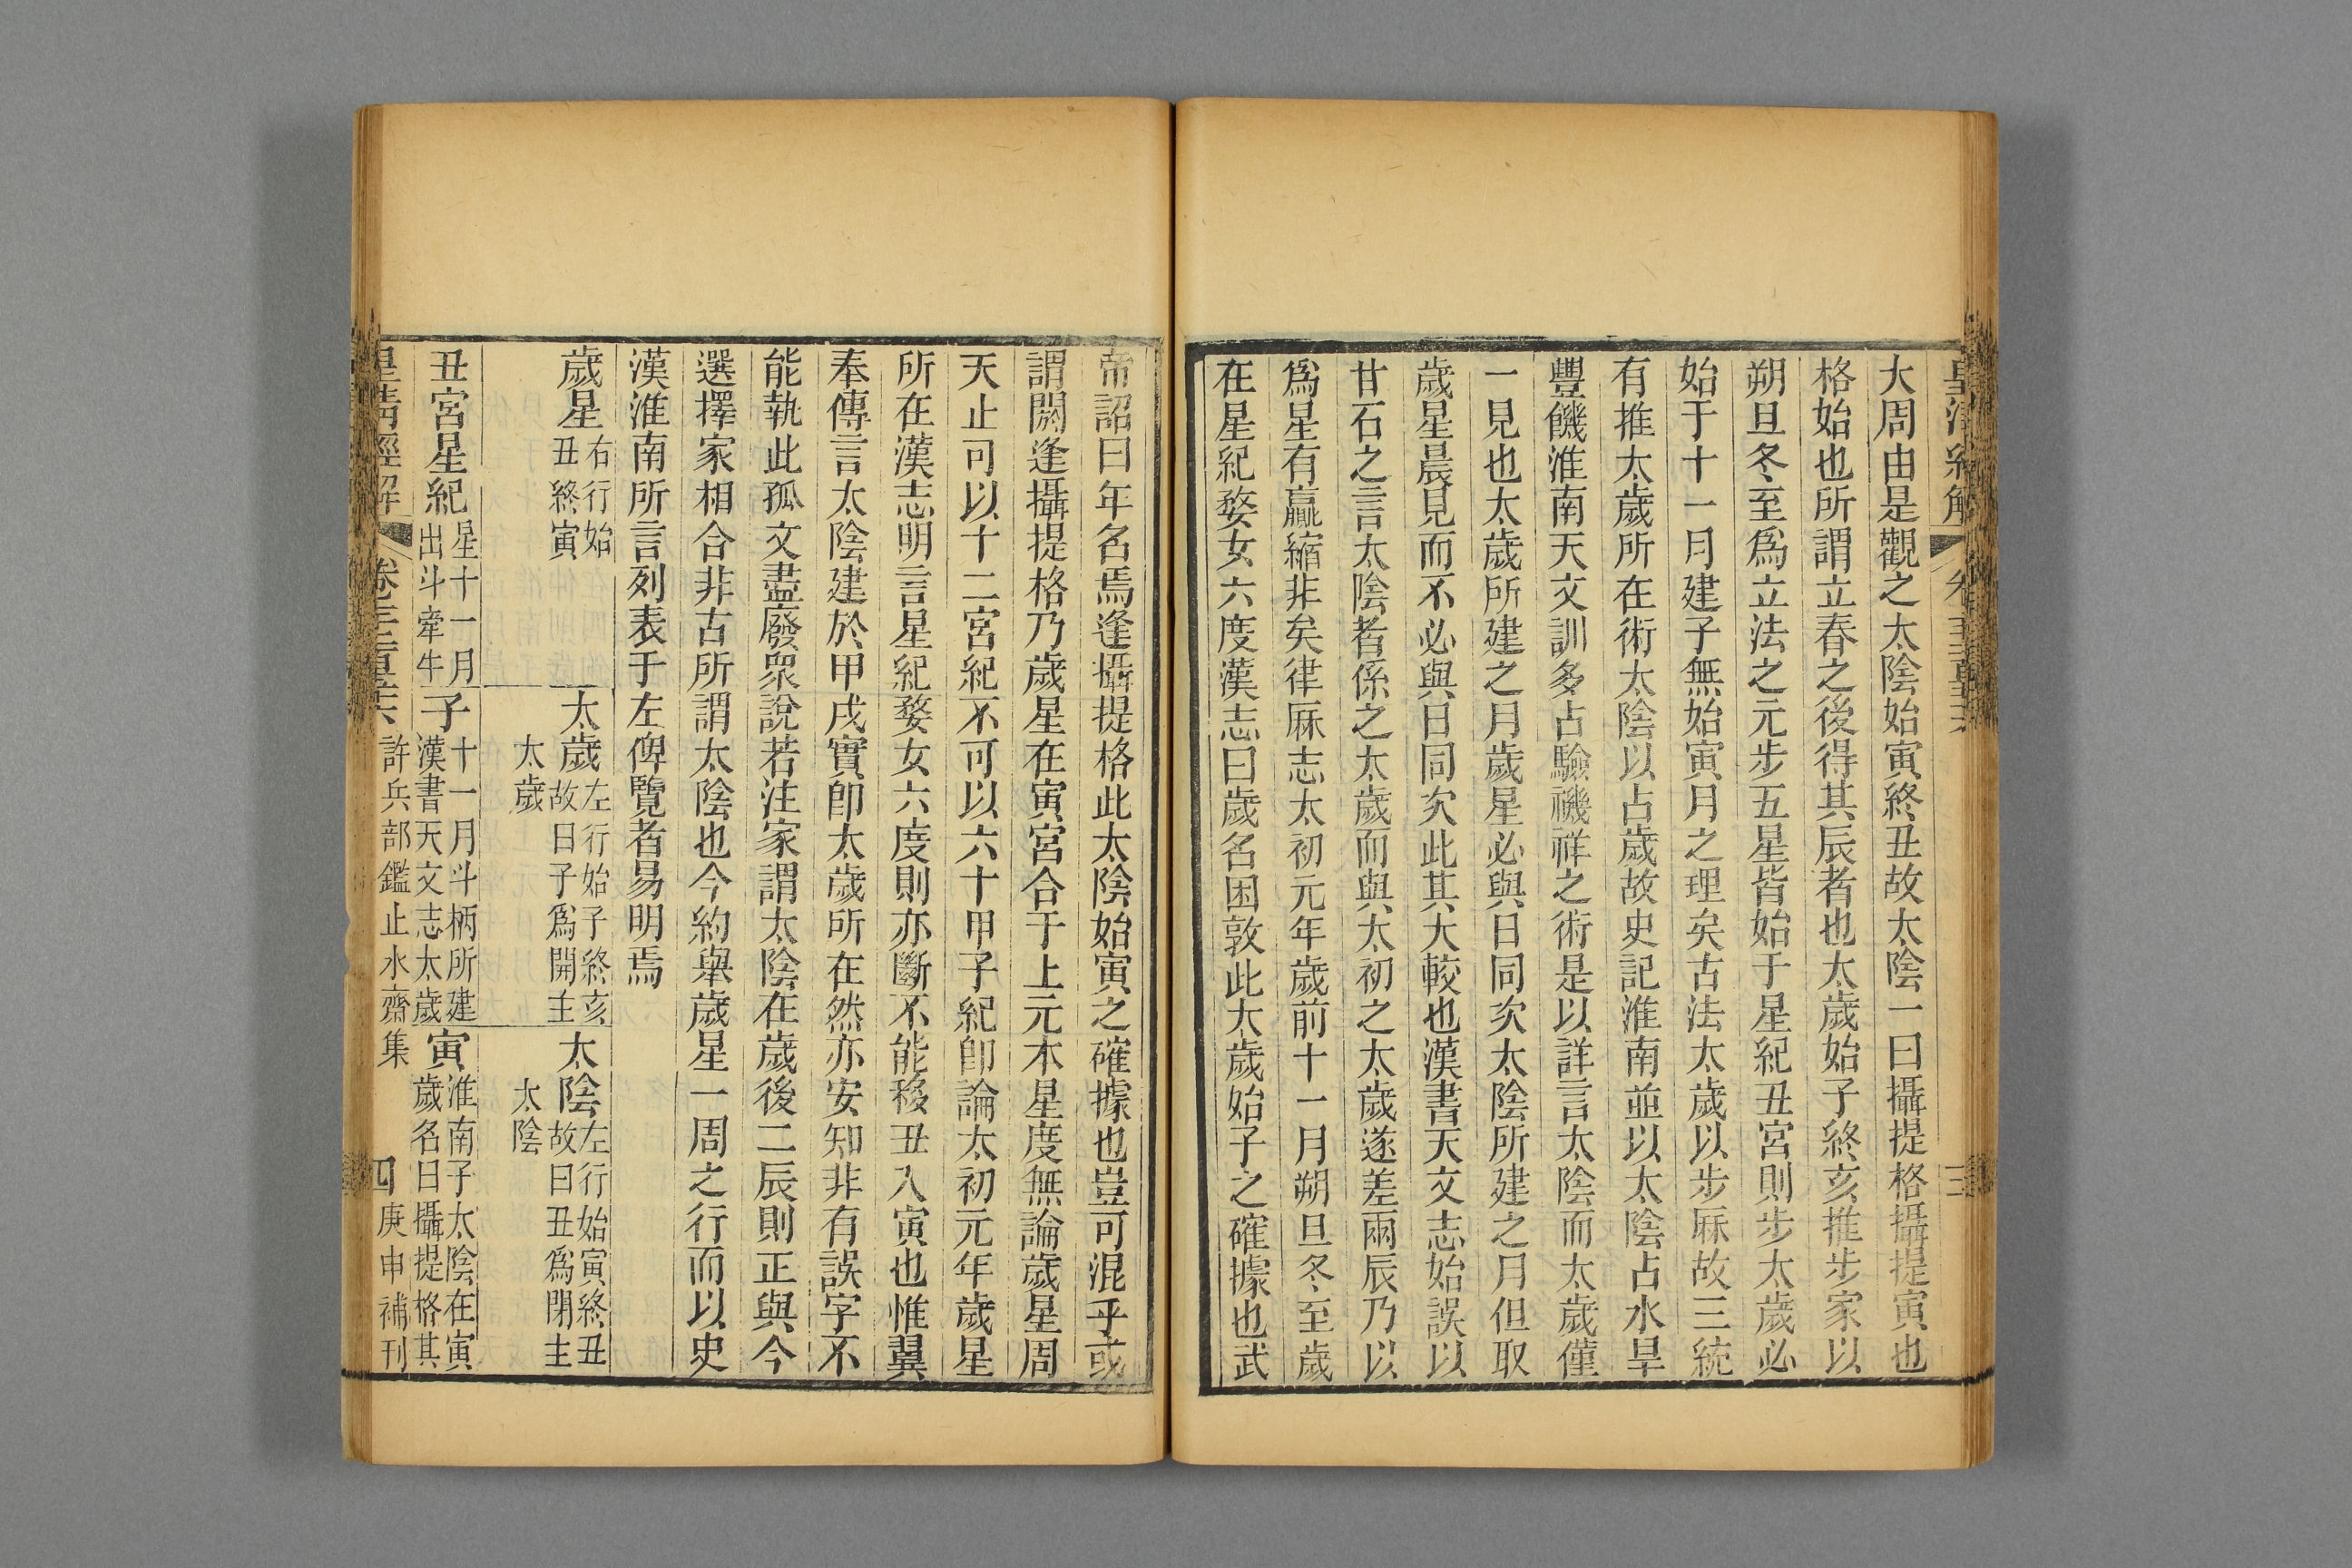 大周由是觀之太陰始寅終丑故太陰一曰攝提格攝提寅也
格始也所謂立春之後得其辰者也太歲始子終亥推步家以
朔旦冬至爲立法之元步五星皆始于星紀丑宮則步太歲必
始于十一月建子無始寅月之理矣古法太歲以步厤故三統
有推太歲所在術太陰以占歲故史記淮南並以太陰占水旱
豐饑淮南天文訓多占驗禨祥之術是以詳言太陰而太歲僅
一見也太歲所建之月歲星必與日同次太陰所建之月但取
歲星晨見而不必與日同次此其大較也漢書天文志始誤以
甘石之言太陰者係之太歲而與太初之太歲遂差兩辰乃以
爲星有贏縮非矣律厤志太初元年歲前十一月朔旦冬至歲
在星紀婺女六度漢志曰歲名困敦此太歲始子之確據也武
帝詔曰年名焉逢攝提格此太陰始寅之確據也豈可混乎或
謂閼逢攝提格乃歲星在寅宮合于上元本星度無論歲星周
天止可以十二宮紀不可以六十甲子紀卽論太初元年歲星
所在漢志明言星紀婺女六度則亦斷不能移丑入寅也惟翼
奉傳言太陰建於甲戌實卽太歲所在然亦安知非有誤字不
能執此孤文盡廢眾說若注家謂太陰在歲後二辰則正與今
選擇家相合非古所謂太陰也今約舉歲星一周之行而以史
漢淮南所言列表于左俾覽者易明焉
歲星 右行始丑終寅
太歲 左行始子終亥故日子爲開主太歲
太陰 左行始寅終丑故曰丑爲閉主太陰
丑宮星紀 星十一月出斗牽牛
子 十一月斗柄所建漢書天文志太歲
寅 淮南子太陰在寅歲名曰攝提格其
皇清經解 卷 許兵部鑑止水齋集 四 庚申補刊